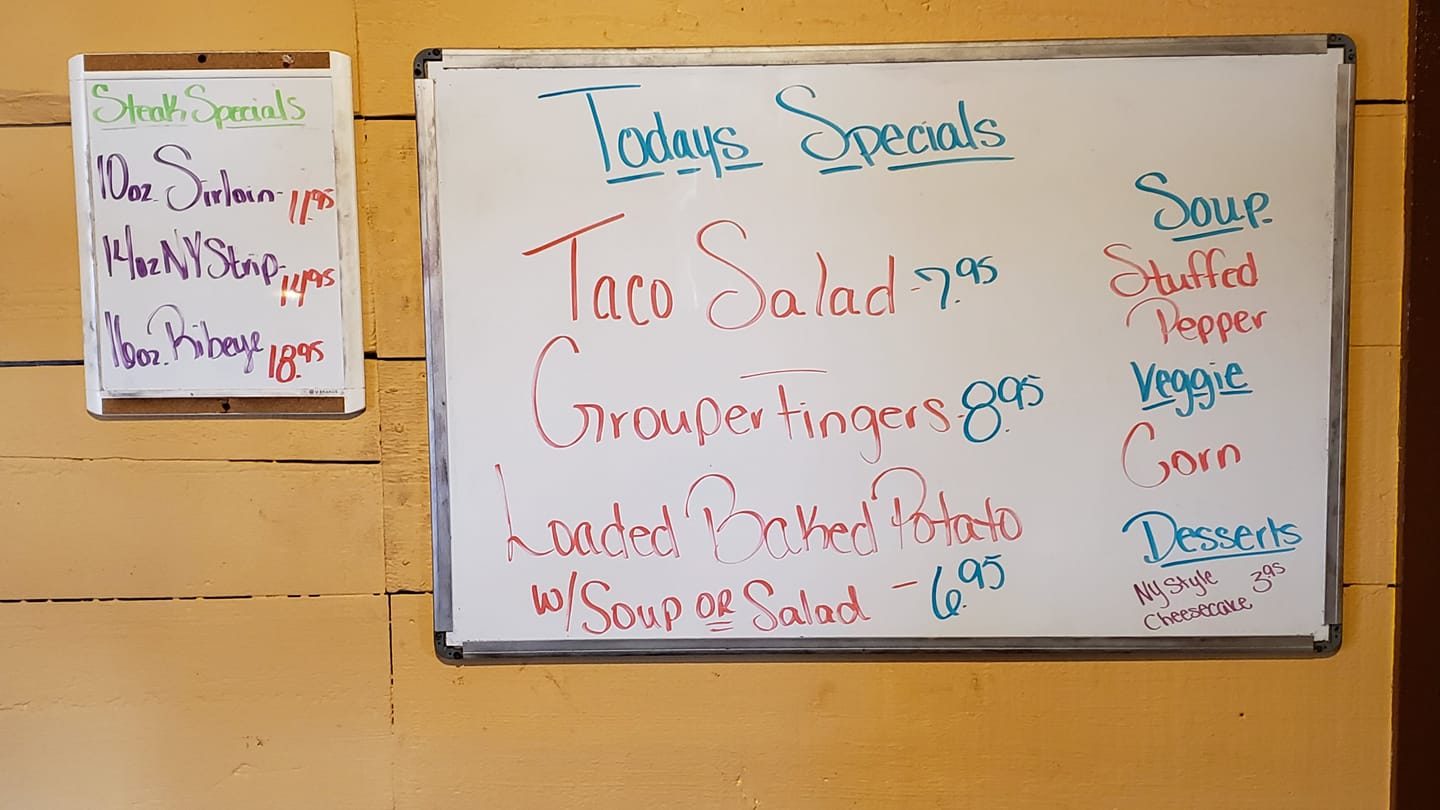 Steak Specials
10oz. Sirloin - 11.95
14oz NY Strip - 14.95
16oz. Ribeye 18.95
Todays Specials
Taco Salad - 7.95
Grouper Fingers - 8.95
Loaded Baked Potato
w/ Soup OR Salad - 6.95
Soup
Stuffed
Pepper
Veggie
Corn
Desserts
NY Style 3.95
Cheesecake